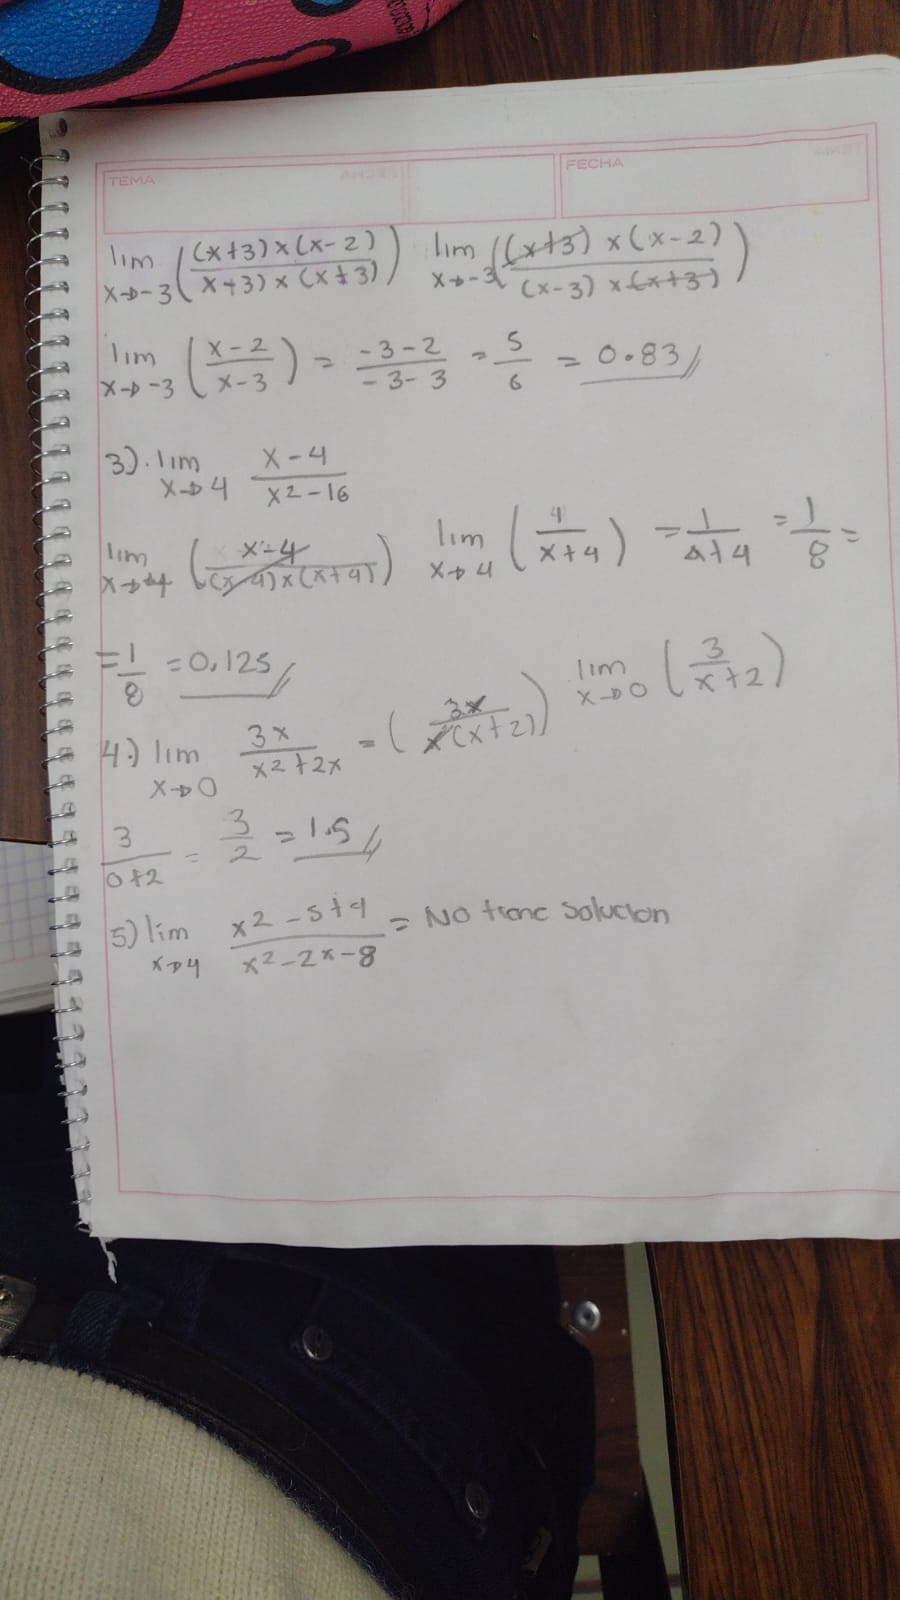 TEMA
FECHA
lim x→-3 ((x+3)x(x-2) / x+3)x(x+3)) lim x→-3 ((x+3)x(x-2) / (x-3)x(x+3))
lim x→-3 (x-2 / x-3) = -3-2 / -3-3 = 5/6 = 0.83
3). lim x→4 x-4 / x2-16
lim x→4 (x-4 / (x-4)x(x+4)) lim x→4 (1 / x+4) = 1 / 4+4 = 1/8 =
= 1/8 = 0,125
4.) lim x→0 3x / x2+2x = (3x / x(x+2)) lim x→0 (3 / x+2)
3 / 0+2 = 3/2 = 1.5
5) lim x→4 x2-5+4 / x2-2x-8 = No tiene solucion